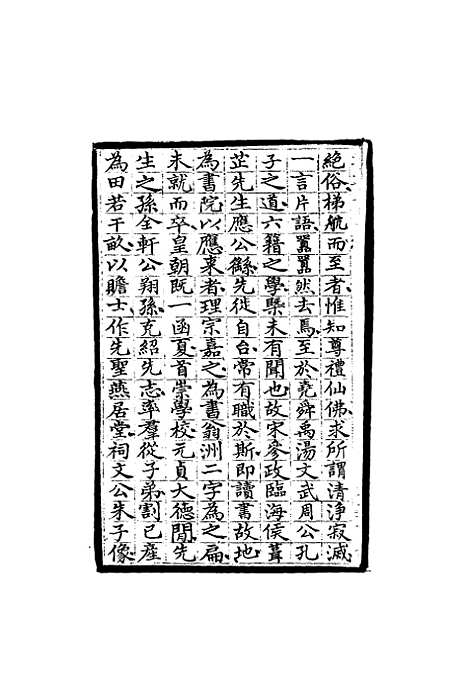 絶俗梯航而至者惟知尊禮仙佛求所謂清淨寂滅
一言片語嚚嚚然去焉至於堯舜禹湯文武周公孔
子之道六籍之學槩未有聞也故宋參政臨海侯葺
芷先生應公繇先徙自台常有職於斯即讀書故地
為書院以應來者理宗嘉之為書翁洲二字為之扁
未就而卒皇朝既一函夏首崇學校元貞大德閒先
生之孫全軒公翔孫克紹先志率羣從子弟割已產
為田若干畝以贍士作先聖燕居堂祠文公朱子像